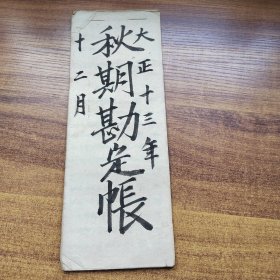 大正十三年
秋期勘定帳
十二月